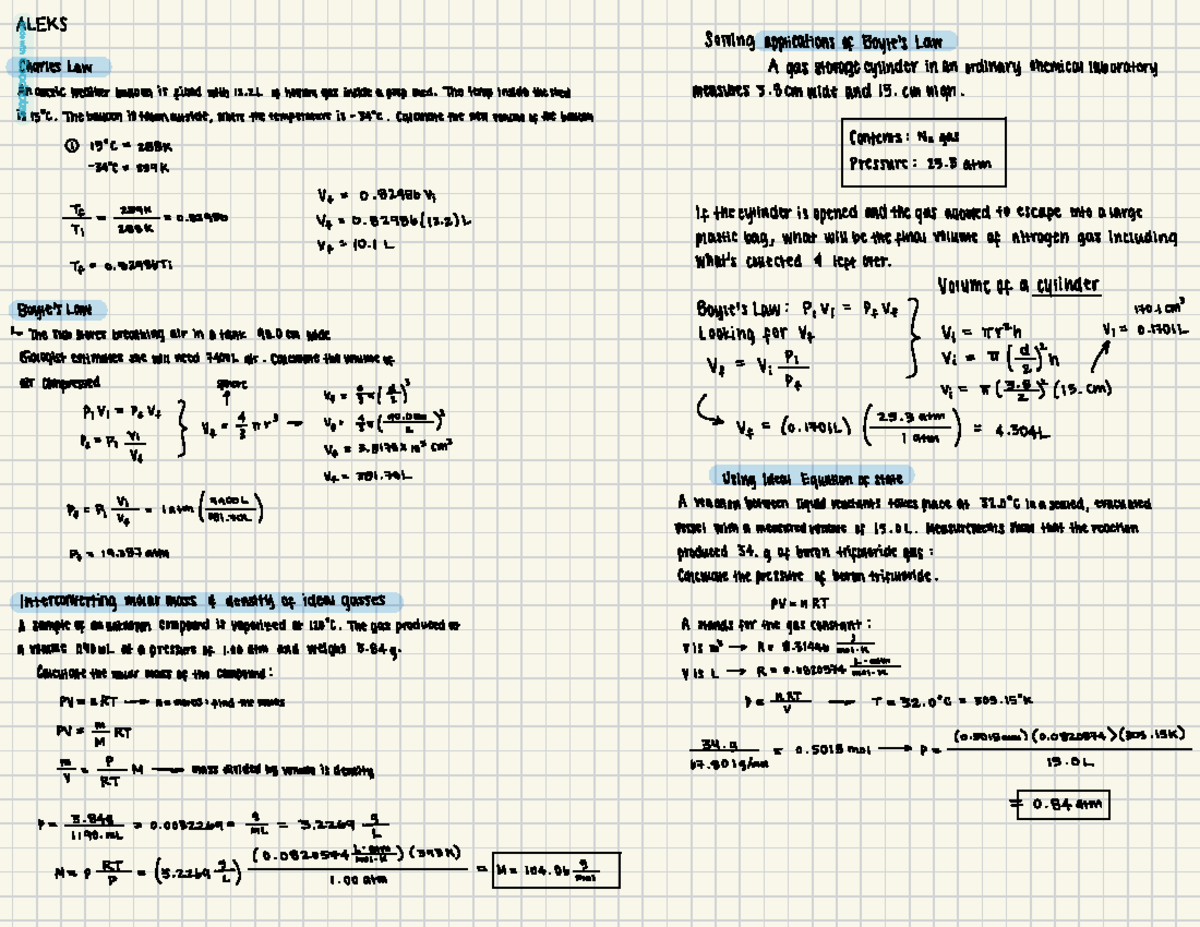 ALEKS
Charles Law
An arctic weather balloon is filled with 12.2L of helium gas inside a prep shed. The temp inside the shed
is 15°C. The balloon is taken outside, where the temperature is -34°C. Calculate the new volume of the balloon
① 15°C = 288K
-34°C = 239K
Tf / Ti = 239K / 288K = 0.82986
Tf = 0.82986Ti
Vf = 0.82986 Vi
Vf = 0.82986(12.2)L
Vf = 10.1 L
Boyle's Law
↳ The sub stores breathing air in a tank 90.0 cm wide
Biologist estimates she will need 7400L air. Calculate the volume of
air compressed
sphere
P1V1 = PfVf
Pf = Pi Vi / Vf
Vf = 4/3 πr³ →
Vf = 4/3 π(d/2)³
Vf = 4/3 π(90.0cm / 2)³
Vf = 3.8170 x 10⁵ cm³
Vf = 381.70L
Pf = Pi Vi / Vf = 1 atm (7400L / 381.70L)
Pf = 19.387 atm
Interconverting molar mass & density of ideal gasses
A sample of an unknown compound is vaporized at 120°C. The gas produced
a volume 1190mL at a pressure of 1.00 atm and weighs 3.84g.
Calculate the molar mass of the compound:
PV = nRT → n = moles: find the moles
PV = m/M RT
m/V = P/RT M → mass divided by volume is density
P = 3.84g / 1190.mL = 0.0032269 = g/mL = 3.2269 g/L
M = P RT/P = (3.2269 g/L) (0.0820574 L·atm/mol·K)(393K) / 1.00 atm = M = 104.06 g/mol
Solving applications of Boyle's Law
A gas storage cylinder in an ordinary chemical laboratory
measures 3.8cm wide and 15. cm high.
Contents: N₂ gas
Pressure: 25.3 atm
If the cylinder is opened and the gas allowed to escape into a large
plastic bag, what will be the final volume of nitrogen gas including
what's collected & left over.
Volume of a cylinder
Boyle's Law: PiVi = PfVf
Looking for Vf
Vf = Vi Pi / Pf
Vi = πr²h
Vi = π(d/2)²h
Vi = π(3.8/2)²(15. cm)
170.1 cm³
Vi = 0.1701L
Vf = (0.1701L) (25.3 atm / 1 atm) = 4.304L
Using Ideal Equation of state
A reaction between liquid reactants takes place at 32.0°C in a sealed, evacuated
vessel with a measured volume of 15.0L. Measurements show that the reaction
produced 34. g of boron trifluoride gas:
Calculate the pressure of boron trifluoride.
PV = nRT
R stands for the gas constant:
V is m³ → R = 8.31446 J/mol·K
V is L → R = 0.0820574 L·atm/mol·K
P = nRT / V → T = 32.0°C = 305.15°K
34.g / 67.801g/mol = 0.5015 mol → P = (0.5015mol)(0.0820574)(305.15K) / 15.0L
= 0.84 atm